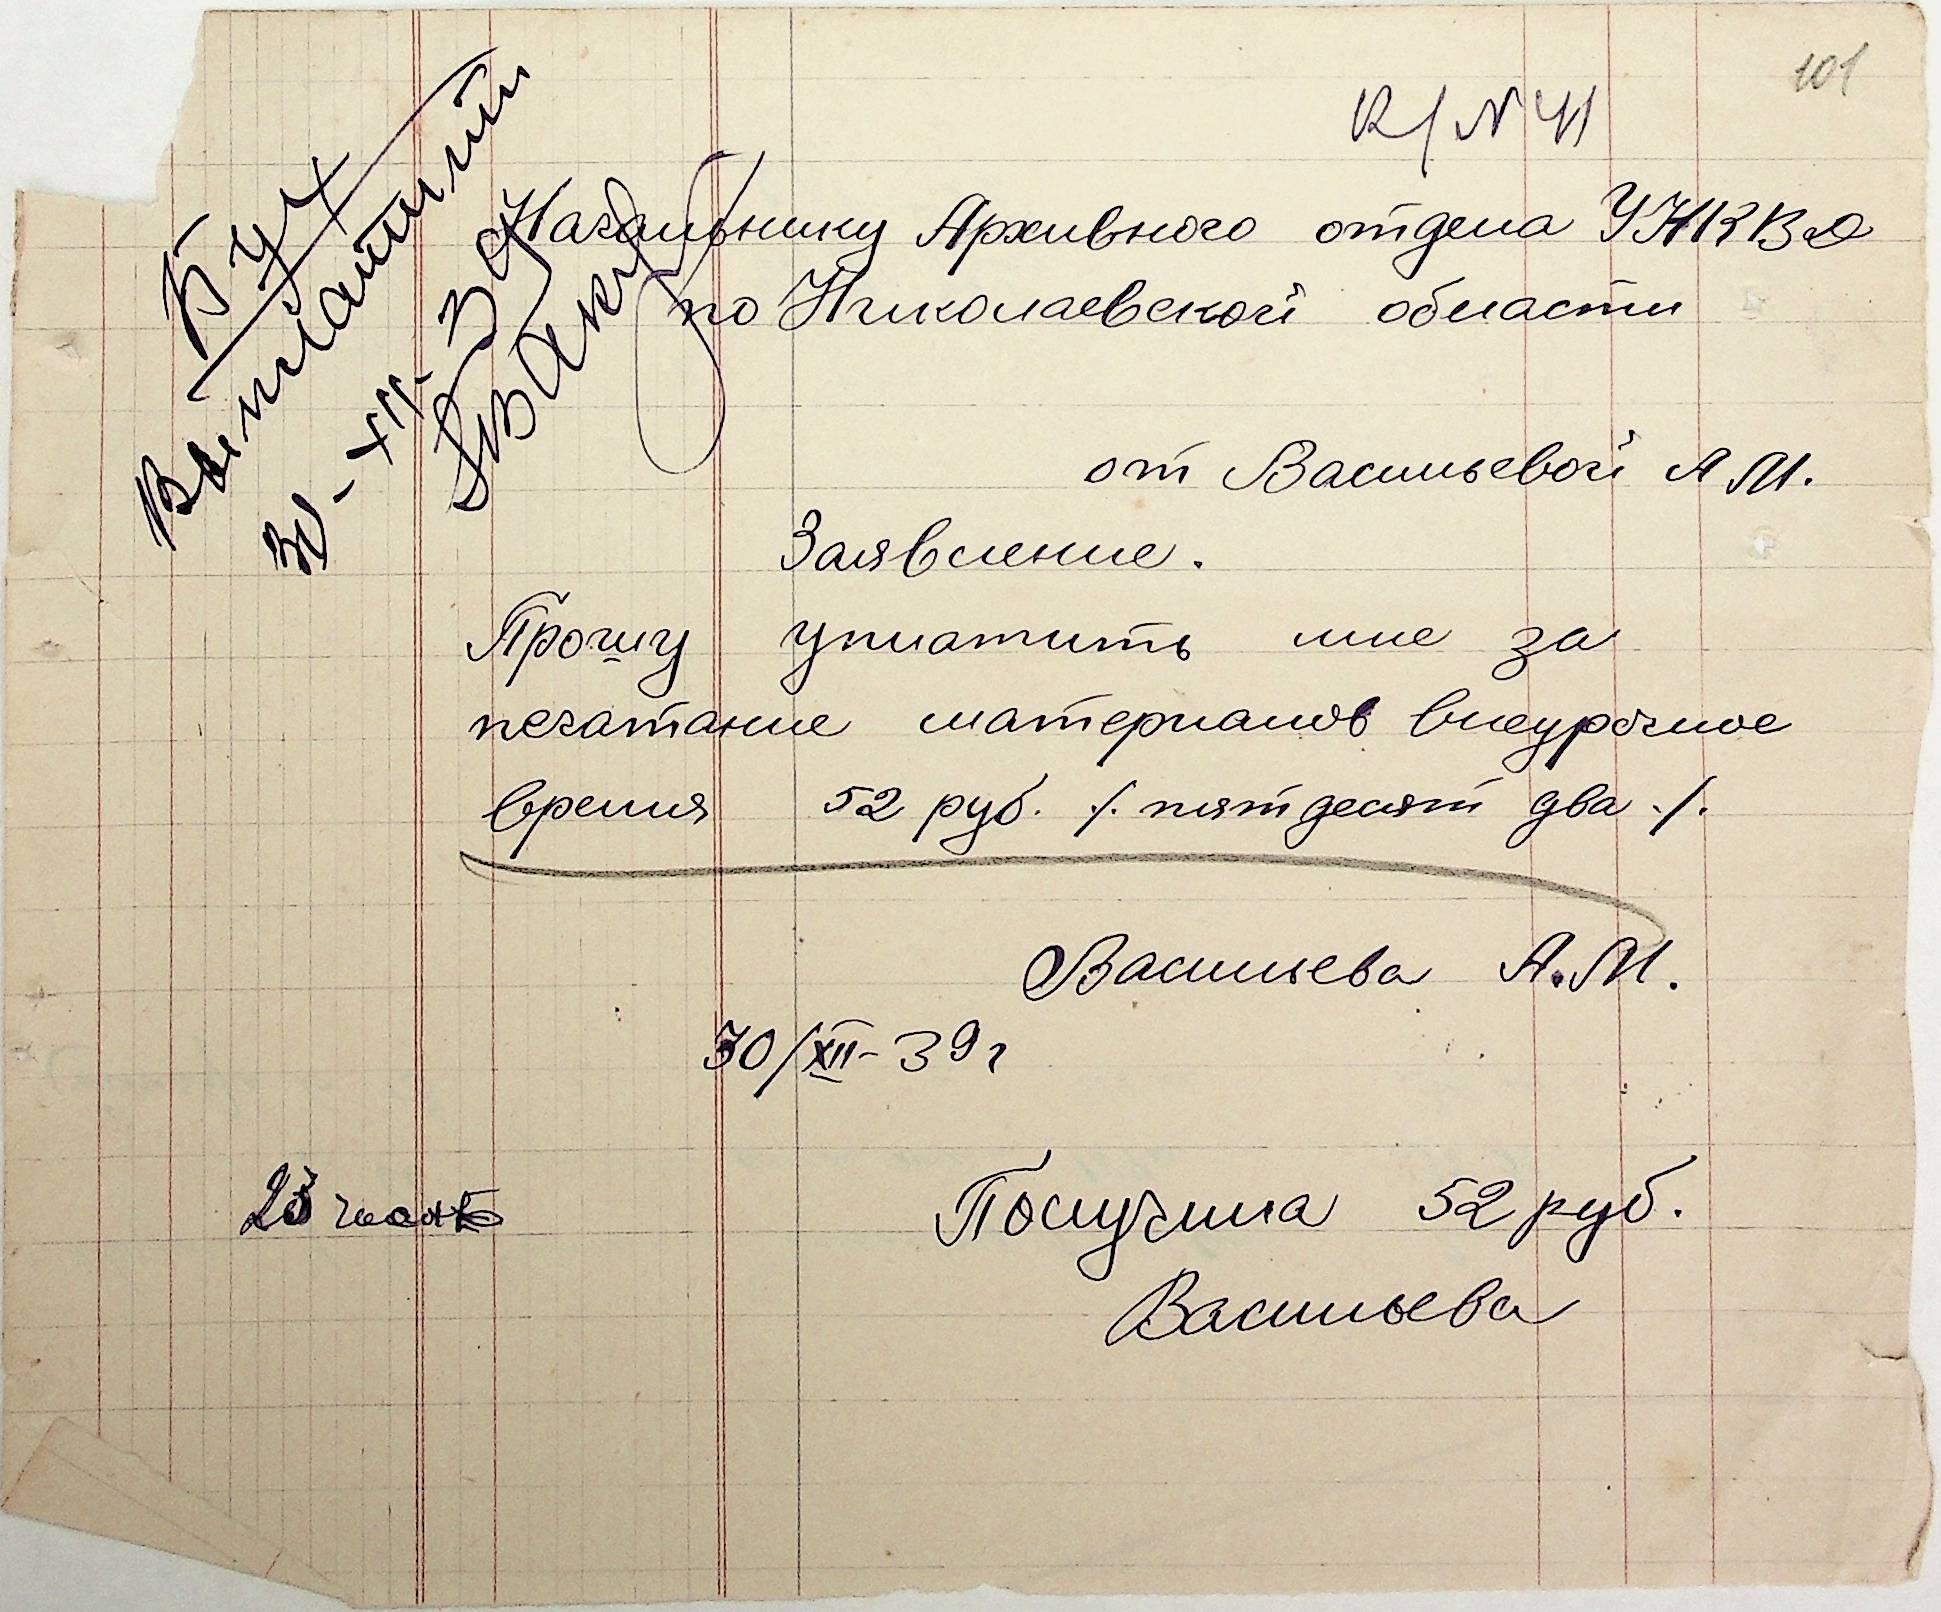 101
К/ № 41
Бух
Выплатить
30-XII-39
Начальнику Архивного отдела УНКВД
по Николаевской области
от Васильевой А М.
Заявление.
Прошу уплатить мне за
печатание материалов внеурочное
время 52 руб. ./. пятдесят два ./.
Васильева А.М.
30/XII-39 г
Получила 52 руб.
Васильева